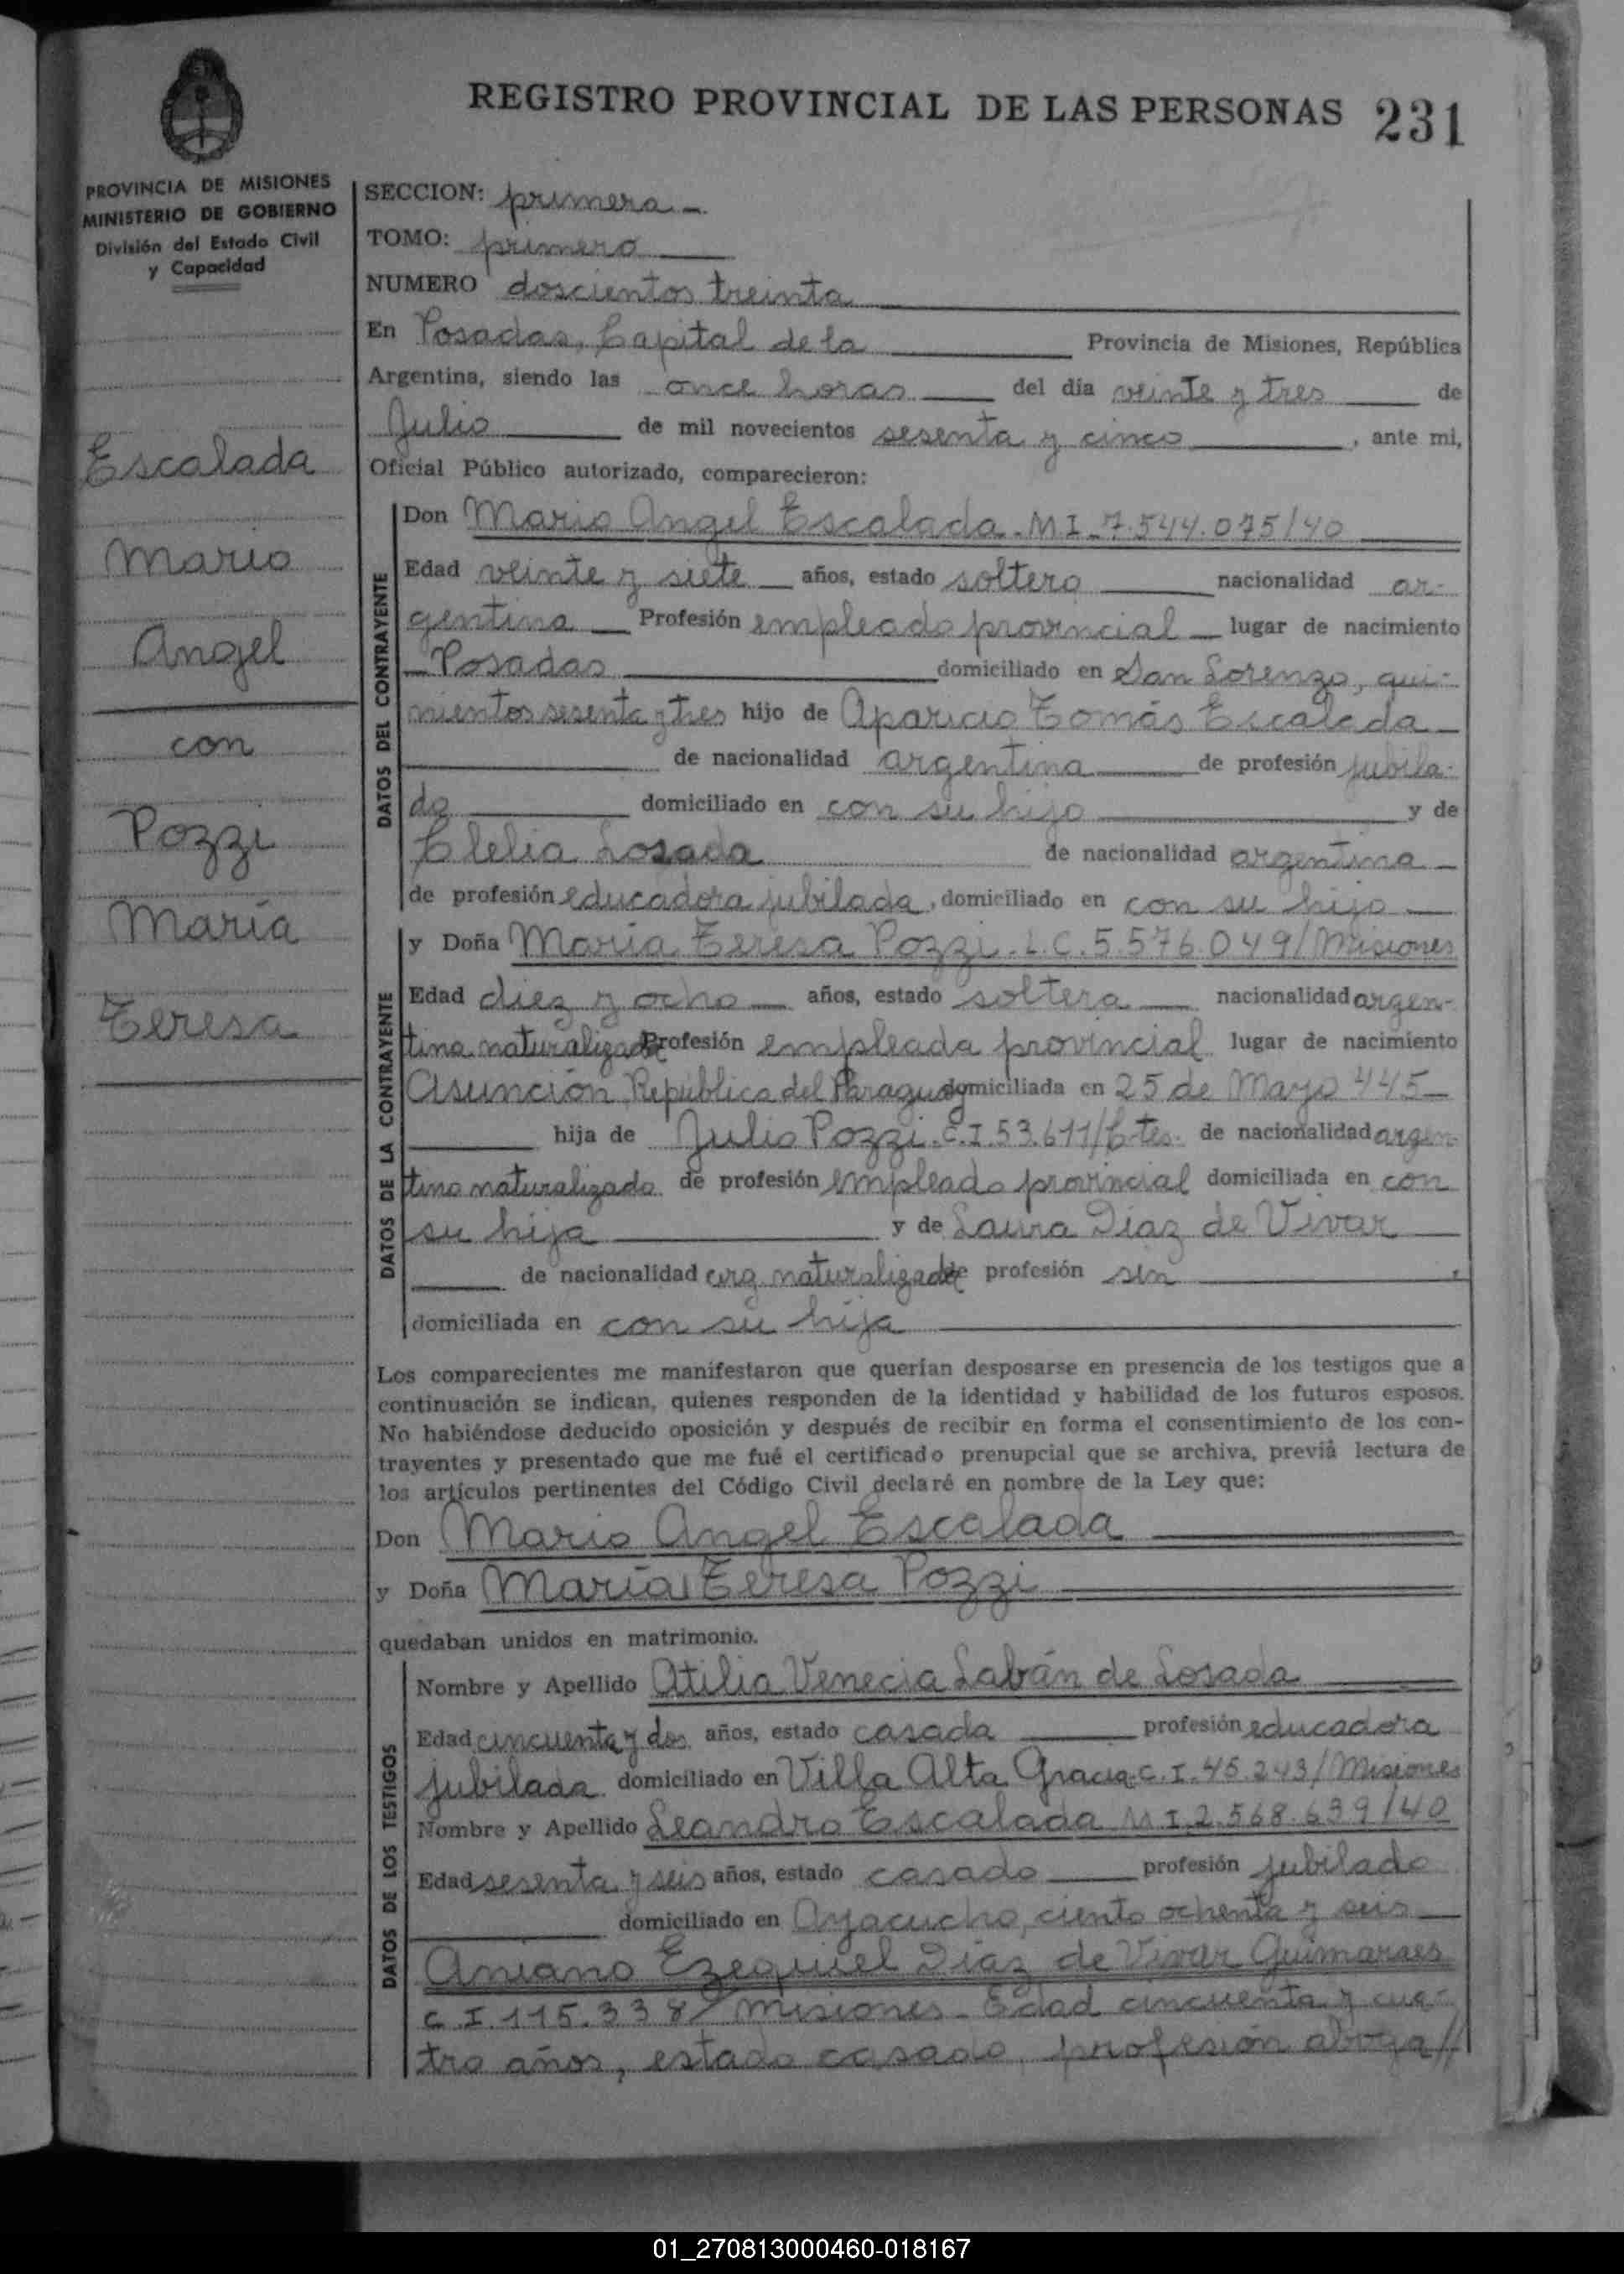 REGISTRO PROVINCIAL DE LAS PERSONAS 231
PROVINCIA DE MISIONES
MINISTERIO DE GOBIERNO
División del Estado Civil
y Capacidad
Escalada
Mario
Angel
con
Pozzi
María
Teresa
SECCION: primera
TOMO: primero
NUMERO doscientos treinta
En Posadas, Capital de la Provincia de Misiones, República
Argentina, siendo las once horas del día veinte y tres de
Julio de mil novecientos sesenta y cinco, ante mi,
Oficial Público autorizado, comparecieron:
DATOS DEL CONTRAYENTE
Don Mario Angel Escalada. M I. 7.544.075/40
Edad veinte y siete años, estado soltero nacionalidad ar-
gentina Profesión empleado provincial lugar de nacimiento
Posadas domiciliado en San Lorenzo, qui-
nientos sesenta y tres hijo de Aparicio Tomás Escalada
de nacionalidad argentina de profesión jubila-
do domiciliado en con su hijo y de
Clelia Losada de nacionalidad argentina
de profesión educadora jubilada, domiciliado en con su hijo
DATOS DE LA CONTRAYENTE
y Doña María Teresa Pozzi. L.C. 5.576.049/Misiones
Edad diez y ocho años, estado soltera nacionalidad argen-
tina naturalizada Profesión empleada provincial lugar de nacimiento
Asunción, República del Paraguay domiciliada en 25 de Mayo 445
hija de Julio Pozzi. C.I. 53.611/Ctes. de nacionalidad argen-
tino naturalizado de profesión empleado provincial domiciliada en con
su hija y de Laura Díaz de Vivar
de nacionalidad arg. naturalizada de profesión sin
domiciliada en con su hija
Los comparecientes me manifestaron que querían desposarse en presencia de los testigos que a
continuación se indican, quienes responden de la identidad y habilidad de los futuros esposos.
No habiéndose deducido oposición y después de recibir en forma el consentimiento de los con-
trayentes y presentado que me fué el certificado prenupcial que se archiva, previa lectura de
los artículos pertinentes del Código Civil declaré en nombre de la Ley que:
Don Mario Angel Escalada
y Doña María Teresa Pozzi
quedaban unidos en matrimonio.
DATOS DE LOS TESTIGOS
Nombre y Apellido Atilia Venecia Labán de Losada
Edad cincuenta y dos años, estado casada profesión educadora
jubilada domiciliado en Villa Alta Gracia. C.I. 45.243/Misiones
Nombre y Apellido Leandro Escalada M I. 2.568.639/40
Edad sesenta y seis años, estado casado profesión jubilado
domiciliado en Ayacucho, ciento ochenta y seis
Aniano Ezequiel Díaz de Vivar Guimaraes
C.I. 115.338/Misiones. Edad cincuenta y cua-
tro años, estado casado, profesión aboga//
01_270813000460-018167